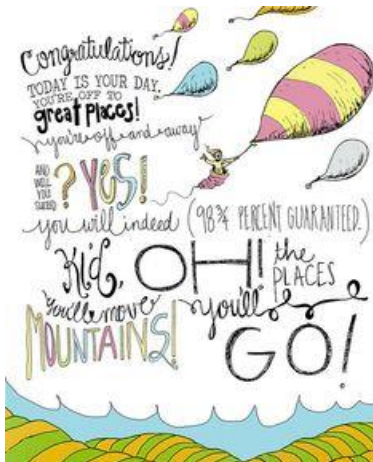 Congratulations!
TODAY IS YOUR DAY.
YOU'RE OFF TO
great places!
you're off and away
AND
WILL
YOU
SUCCEED
? YES!
you will indeed (98¾ PERCENT GUARANTEED.)
Kid,
you'll move
MOUNTAINS!
OH! the
PLACES
you'll
GO!